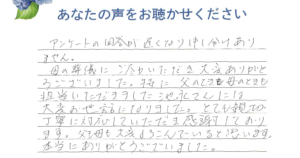 あなたの声をお聴かせください
アンケートの回答が遅くなり申し分けあり
ません。
母の葬儀に
いただき大変ありがと
うございました。特に父のときも母のときも
担当いただきました池永さんには
大変お世話になりました。とても親切
丁寧に対応していただき感謝しており
ます。父も母も大変よろこんでいると思います。
本当にありがとうございました。